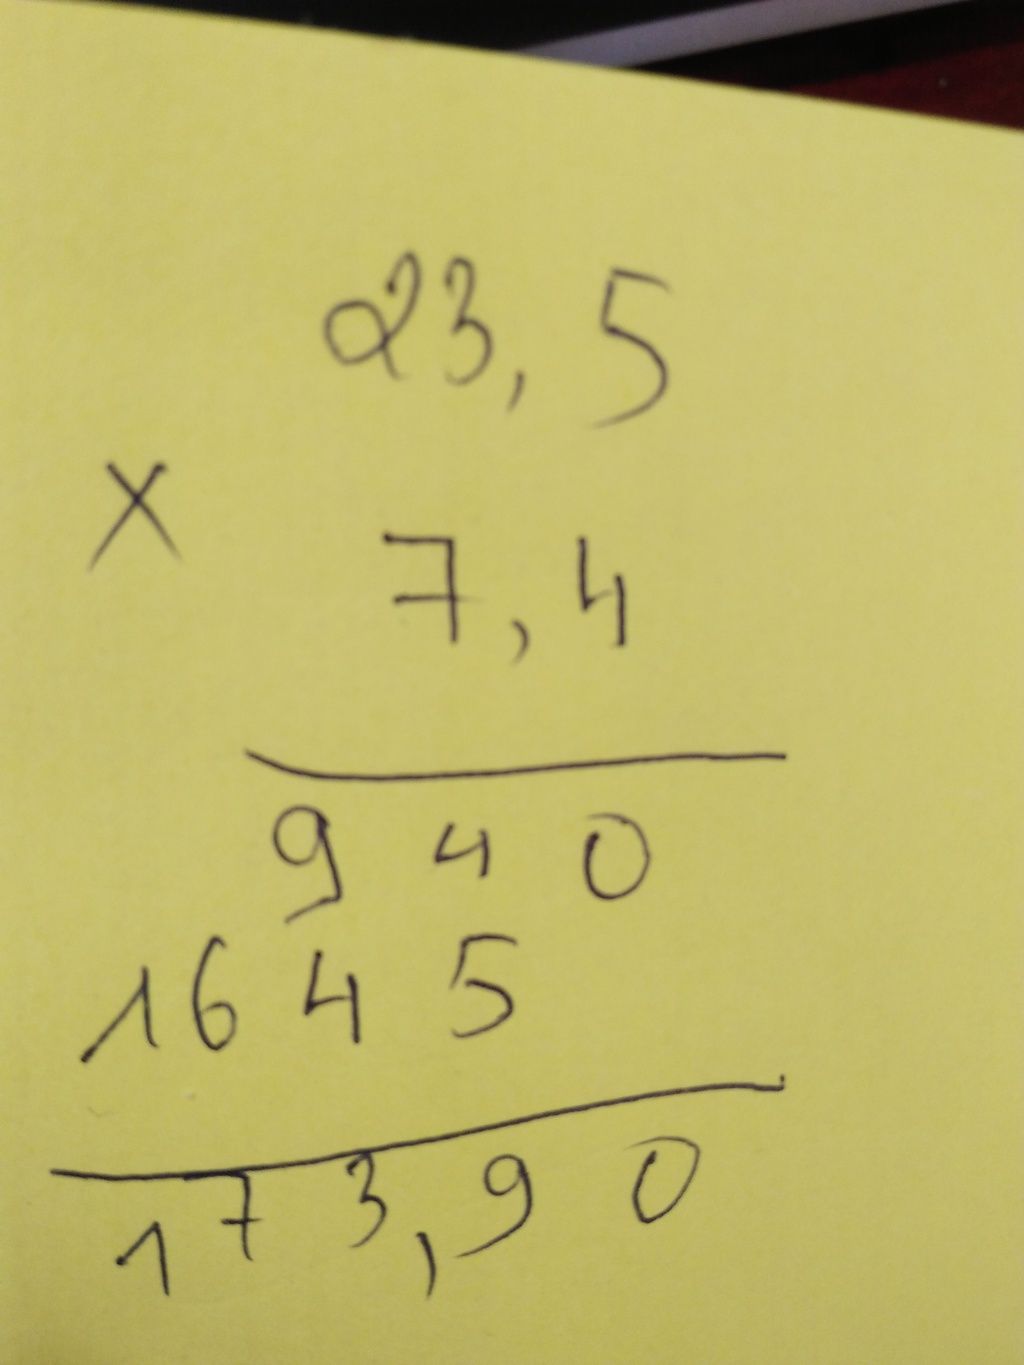 23,5
× 7,4
940
1645
173,90